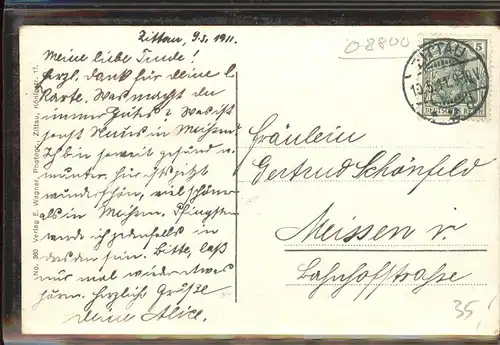 Zittau, 9.5. 1911.
Meine liebe Trude!
Herzl. Dank für deine l.
Karte. Was macht denn
immer Gutes? Was ist
sonst Neues in Meißen?
Ich bin soweit gesund u.
munter. Hier ists jetzt
wunderschön, viel schöner
als in Meißen. Pfingsten
werde ich jedenfalls in
sein. Bitte, laß
nur mal wieder etwas
hören. Herzliche Grüße
deine Alice.
0-8800
ZITTAU
5
Fräulein
Gertrud Schönfeld
Meissen i.
Bahnhofstraße
35,
No. 360 Verlag E. Wagner, Photogr., Zittau, 17.